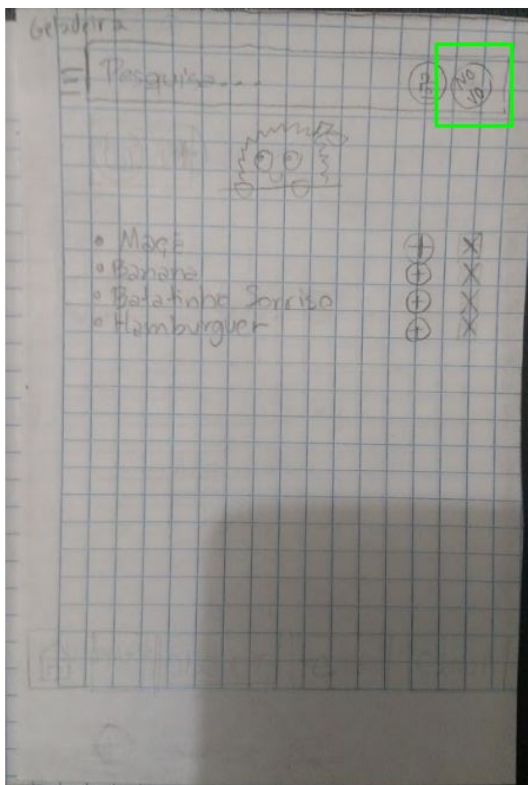 Geladeira
Pesquisa...
NO
VO
• Maçã
• Banana
• Batatinha Sorriso
• Hamburguer